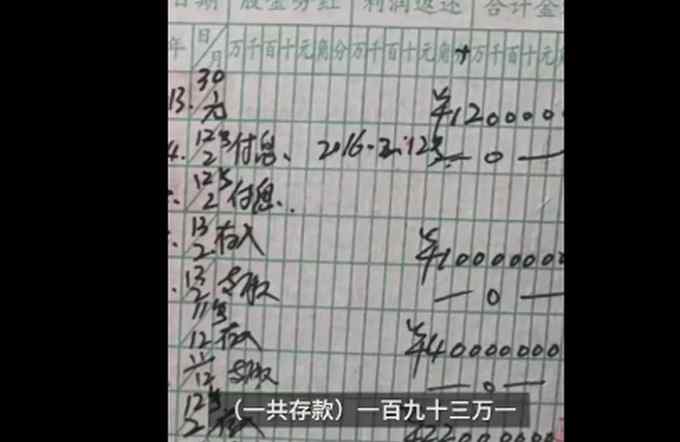 日期 股金分红 利润返还 合计金
年 日/月 万千百十元角分 万千百十元角 万千百十元
13. 30/元 ¥120000
4. 12号/2 付息、 2016.2.12号 — 0 —
12号/2 付息..
13/2 存入 ¥10000000
13/2 支取 — 0 —
11号/12 存入 ¥40000000
11/12 支取 — 0 —
12号/2 存入
(一共存款)一百九十三万一